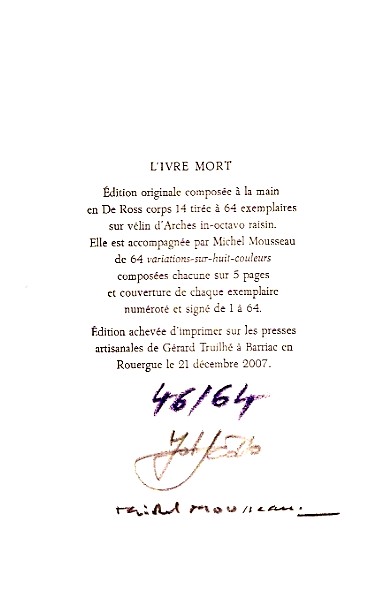 L'IVRE MORT
Édition originale composée à la main
en De Ross corps 14 tirée à 64 exemplaires
sur vélin d'Arches in-octavo raisin.
Elle est accompagnée par Michel Mousseau
de 64 variations-sur-huit-couleurs
composées chacune sur 5 pages
et couverture de chaque exemplaire
numéroté et signé de 1 à 64.
Édition achevée d'imprimer sur les presses
artisanales de Gérard Truilhé à Barriac en
Rouergue le 21 décembre 2007.
46/64
Michel Mousseau.